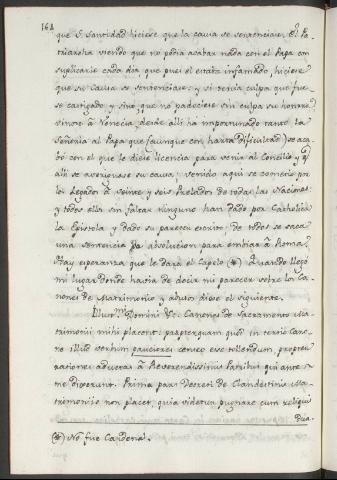 162
que S. Santidad hiciese que la causa se sentenciase. El Pa-
triarcha viendo que no podia acabar nada con el Papa con
suplicarle cada dia que pues el estaba infamado, hiciese
que su causa se sentenciase: y si tenia culpa que fue-
se castigado y sino, que no padeciese sin culpa su honrra,
vinose à Venecia, desde alli ha importunado tanto la
Señoria al Papa que (aunque con harta dificultad) se aca-
bó con el que le diese licencia para venir al Concilio y q
alli se averiguase su causa; venido aqui se cometió por
los Legados à veinte y seis Prelados de todas las Naciones:
y todos ellos sin faltar ninguno han dado por Catholica
la Epistola y dado su parecer escrito; de todos se saca
una sentencia de absolucion para embiar à Roma.
Hay esperanza que le dará el Capelo (*) Quando llegó
mi lugar donde havia de decir mi parecer sobre los Ca-
nones de Matrimonio y abusos dixe el siguiente.
Illmi. Domini &c. Canones de Sacramento Ma-
trimonii mihi placent: præterquam quod in tertio Cano-
ne illud verbum censeo esse tollendum, propter
rationes adductas à Reverendissimis Patribus qui ante
me dixerunt. Prima pars Decreti de Clandestinis Ma-
trimoniis non placet, quia videtur pugnare cum reliqui
dua.
(*) No fue Cardenal.